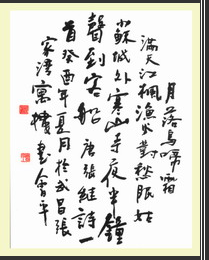 月落烏啼霜
滿天江楓漁火對愁眠姑
蘇城外寒山寺夜半鐘
聲到客船 唐張繼詩一
首癸酉年夏月於武昌張
家湾寓樓